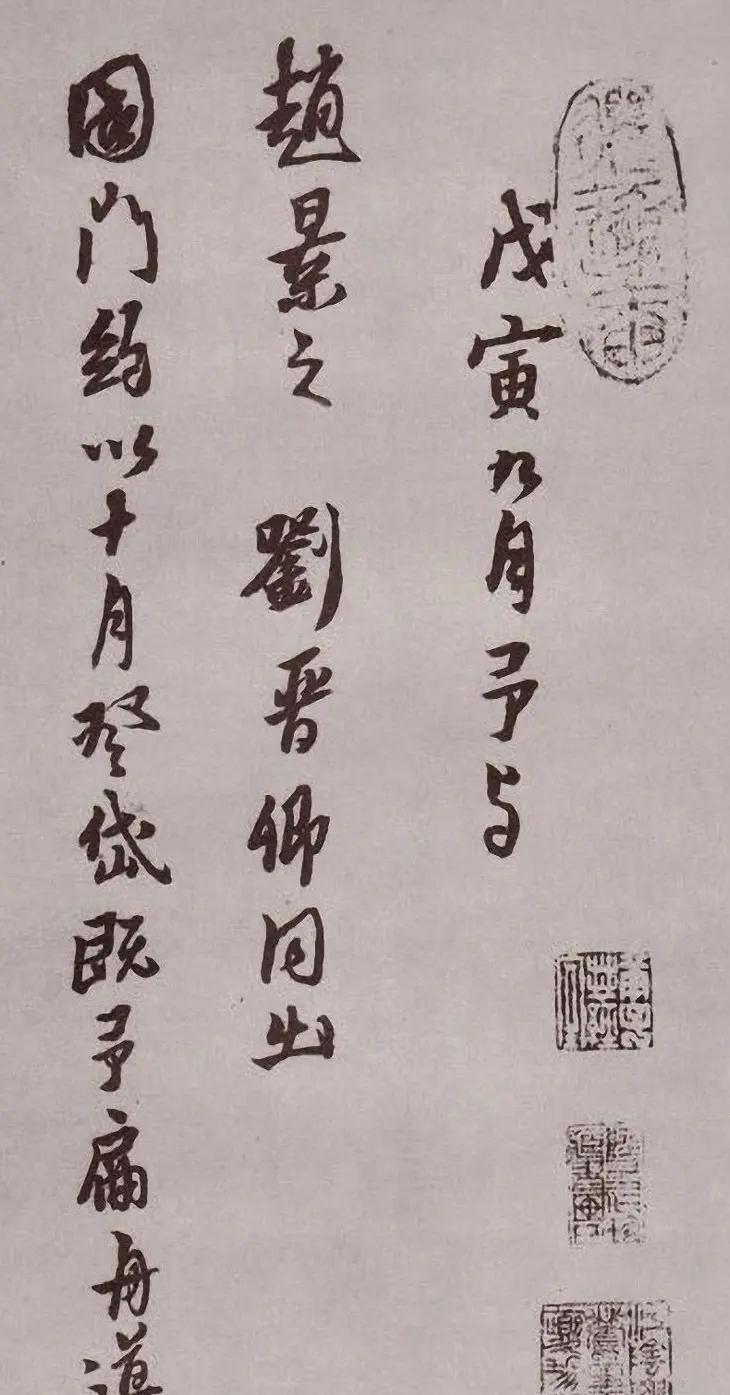 戊寅九月予与
趙景之 劉晉卿同出
國門約以十月登岱既予扁舟道